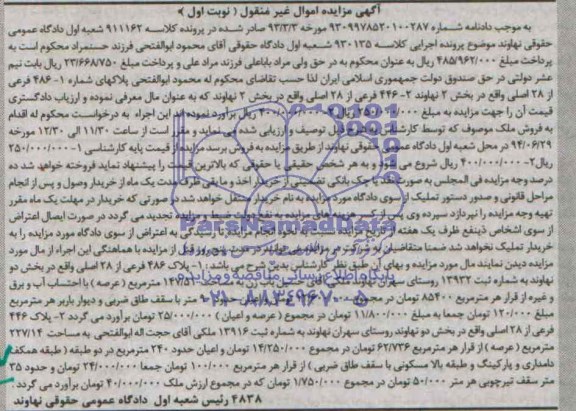 آگهی مزایده اموال غیر منقول ( نوبت اول )
به موجب دادنامه شماره ۹۳۰۹۹۷۸۵۳۰۱۰۰۲۸۷ مورخه ۹۳/۳/۳ صادر شده در پرونده کلاسه ۹۱۱۱۶۲ شعبه اول دادگاه عمومی
حقوقی نهاوند موضوع پرونده اجرایی کلاسه ۹۳۰۱۳۵ شعبه اول دادگاه حقوقی آقای محمود ابوالفتحی فرزند حسنمراد محکوم است به
پرداخت مبلغ ۴۸۵/۹۶۲/۰۰۰ ریال به عنوان محکوم به در حق ولی مراد باباعلی فرزند مراد علی و پرداخت مبلغ ۲۳/۶۶۸/۷۵۰ ریال بابت نیم
عشر دولتی در حق صندوق دولت جمهوری اسلامی ایران لذا حسب تقاضای محکوم له محمود ابوالفتحی پلاکهای شماره ۱- ۴۸۶ فرعی
از ۲۸ اصلی واقع در بخش ۲ نهاوند ۲- ۴۴۶ فرعی از ۲۸ اصلی واقع در بخش ۲ نهاوند که به عنوان مال معرفی نموده و ارزیاب دادگستری
قیمت آن را جهت مزایده به مبلغ ۲۵۰/۰۰۰/۰۰۰ ریال ۴۰۰/۰۰۰/۰۰۰ ریال برآورد نموده اند این اجراء به درخواست محکوم له اقدام
به فروش ملک موصوف که توسط کارشناس توصیف و ارزیابی شده می نماید و مقرر است از ساعت ۱۱/۳۰ الی ۱۲/۳۰ مورخه
۹۴/۰۶/۲۹ در محل شعبه اول دادگاه عمومی حقوقی نهاوند از طریق مزایده به فروش برسد مزایده از قیمت پایه کارشناسی ۱- ۲۵۰/۰۰۰/۰۰۰
ریال ۲- ۴۰۰/۰۰۰/۰۰۰ ریال شروع می شود و به هر شخص حقیقی یا حقوقی که بالاترین قیمت را پیشنهاد نماید فروخته خواهد شد ده
درصد وجه مزایده فی المجلس به صورت نقد یا چک بانکی تضمینی از خریدار اخذ و مابقی ظرف مدت یک ماه از خریدار وصول و پس از انجام
مراحل قانونی و صدور دستور تملیک از سوی دادگاه مورد مزایده به نام خریدار منتقل خواهد شد در صورتی که خریدار در مهلت یک ماه مقرر
تهیه وجه مزایده را نپردازد سپرده وی پس از کسر هزینه های مزایده به نفع دولت ضبط و مزایده تجدید می گردد در صورت ایصال اعتراض
از سوی اشخاص ذینفع ظرف یک هفته به اعتراض از سوی دادگاه مورد مزایده را به
خریدار تملیک نخواهد شد ضمنا متقاضیان پنج روز قبل از مزایده با هماهنگی این اجراء از مال مورد
مزایده دیدن نمایند مال مورد مزایده و بهای آن طبق نظر کارشناس بدین شرح می باشد: ۱- پلاک ۴۸۶ فرعی از ۲۸ اصلی واقع در بخش دو
نهاوند به شماره ثبت ۱۳۹۳۲ روستای سهران نهاوند ملکی آقای حسین مترمربع ( عرصه ) با احتساب آب و برق
و غیره از قرار هر مترمربع ۸۵۴۰۰ تومان در مجموع متر با سقف طاق ضربی و دیوار باربر هر مترمربع
مبلغ ۱۲۰/۰۰۰ تومان جمعا به مبلغ ۱۱/۸۰۰/۰۰۰ تومان در مجموع ( عرصه و اعیان ) ۲۵/۰۰۰/۰۰۰ تومان برآورد می گردد ۲- پلاک ۴۴۶
فرعی از ۲۸ اصلی واقع در بخش دو نهاوند روستای سهران نهاوند به شماره ثبت ۱۳۹۱۶ ملکی آقای حجت اله ابوالفتحی به مساحت ۲۲۷/۱۴
مترمربع ( عرصه ) از قرار هر مترمربع ۶۲/۷۳۶ تومان در مجموع ۱۴/۲۵۰/۰۰۰ تومان و اعیان حدود ۲۴۰ مترمربع در دو طبقه ( طبقه همکف
دامداری و پارکینگ و طبقه بالا مسکونی با سقف طاق ضربی ) از قرار هر مترمربع ۱۰۰/۰۰۰ تومان جمعا ۲۴/۰۰۰/۰۰۰ تومان و حدود ۳۵
متر سقف تیرچوبی هر متر ۵۰/۰۰۰ تومان در مجموع ۱/۷۵۰/۰۰۰ تومان که در مجموع ارزش ملک ۴۰/۰۰۰/۰۰۰ تومان برآورد می گردد .
۴۸۳۸ رئیس شعبه اول دادگاه عمومی حقوقی نهاوند
ParsNamadData
پایگاه اطلاع رسانی مناقصه و مزایده
۰۲۱-۸۸۳۴۹۶۷۰-۵